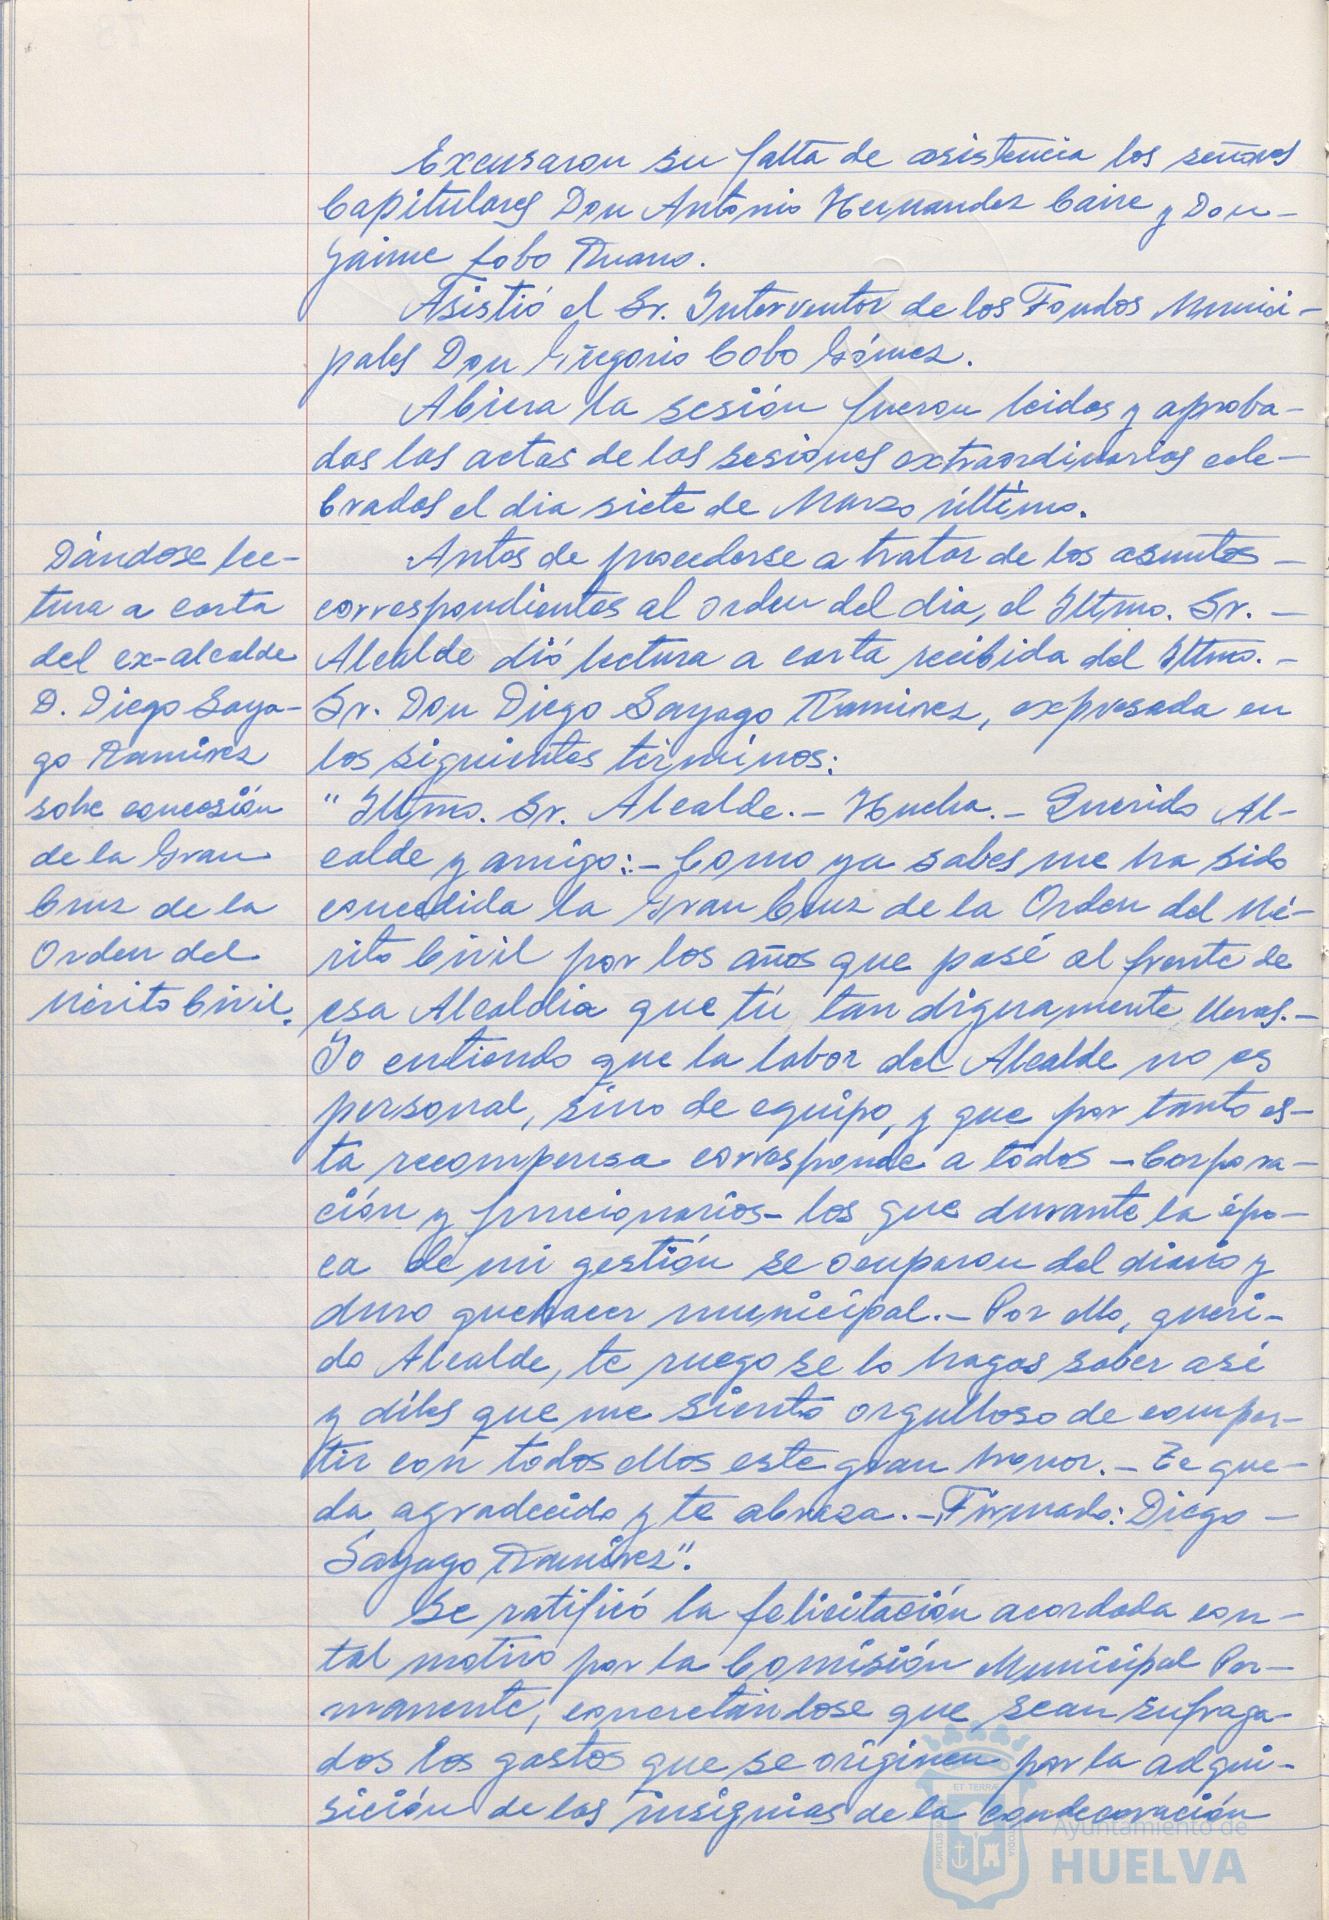 Excusaron su falta de asistencia los señores
Capitulares Don Antonio Hernandez Caire y Don-
Jaime Lobo Ruano.
Asistió el Sr. Interventor de los Fondos Munici-
pales Don Gregorio Cobo Gómez.
Abiera la sesión fueron leidas y aproba-
das las actas de las sesiones extraordinarias cele-
bradas el dia siete de Marzo último.
Dándose lec-
tura a carta
del ex-alcalde
D. Diego Saya-
go Ramirez
sobre concesión
de la Gran
Cruz de la
Orden del
Mérito Civil.
Antes de procederse a tratar de los asuntos-
correspondientes al orden del dia, el Iltmo. Sr.-
Alcalde dió lectura a carta recibida del Iltmo.-
Sr. Don Diego Sayago Ramirez, expresada en
los siguientes términos:
"Iltmo. Sr. Alcalde.- Huelva.- Querido Al-
calde y amigo:- Como ya sabes me ha sido
concedida la Gran Cruz de la Orden del Mé-
rito Civil por los años que pasé al frente de
esa Alcaldia que tú tan dignamente llevas.-
Yo entiendo que la labor del Alcalde no es
personal, sino de equipo, y que por tanto es-
ta recompensa corresponde a todos -Corpora-
ción y funcionarios- los que durante la épo-
ca de mi gestión se ocuparon del diario y
duro quehacer municipal.- Por ello, queri-
do Alcalde, te ruego se lo hagas saber asi
y diles que me siento orgulloso de compar-
tir con todos ellos este gran honor.- Te que-
da agradecido y te abraza.- Firmado: Diego-
Sayago Ramirez".
Se ratificó la felicitación acordada con-
tal motivo por la Comisión Municipal Per-
manente, concretándose que sean sufraga-
dos los gastos que se originen por la adqui-
sición de las insignias de la condecoración
Ayuntamiento de
HUELVA